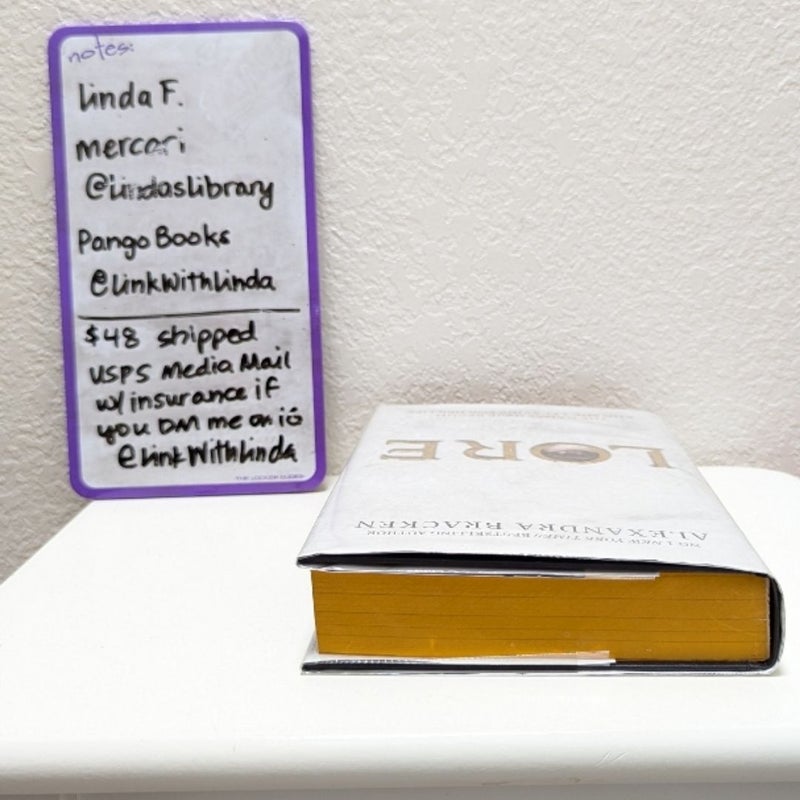 notes:
Linda F.
mercari
@lindaslibrary
Pango Books
@linkWithlinda
$48 shipped
USPS Media Mail
w/ insurance if
you DM me on iG
@linkWithlinda
LORE
ALEXANDRA BRACKEN
NO. 1 NEW YORK TIMES BESTSELLING AUTHOR